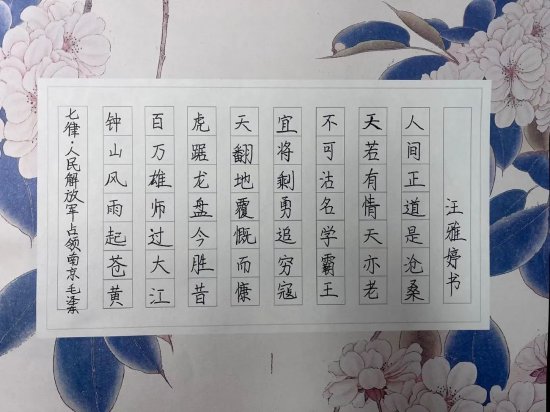 七律·人民解放军占领南京毛泽东
钟山风雨起苍黄
百万雄师过大江
虎踞龙盘今胜昔
天翻地覆慨而慷
宜将剩勇追穷寇
不可沽名学霸王
天若有情天亦老
人间正道是沧桑
汪雅婷书